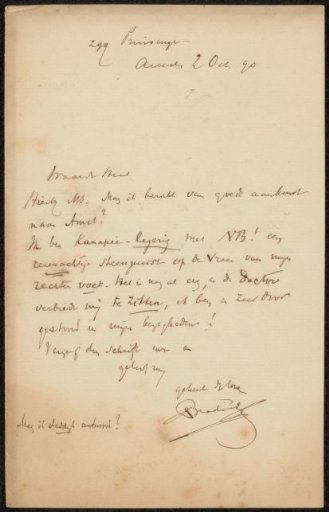 299 Prinsengr
Amst. 2 Oct. 90
Waarde Heer
Hierbij MS. Mag ik bericht van goede aankomst
naar Amst?
Ik ben Kanapee-legerig met NB! een
steenpuist op de vrees van mijn
rechter voet. Het is nog al erg, en de doctor
verbiedt mij te zitten, ik ben er zeer door
gestoord in mijn bezigheden!
Vergeef dus schrift en
geloof mij
geheel de Uwe
Mag ik antwoord?